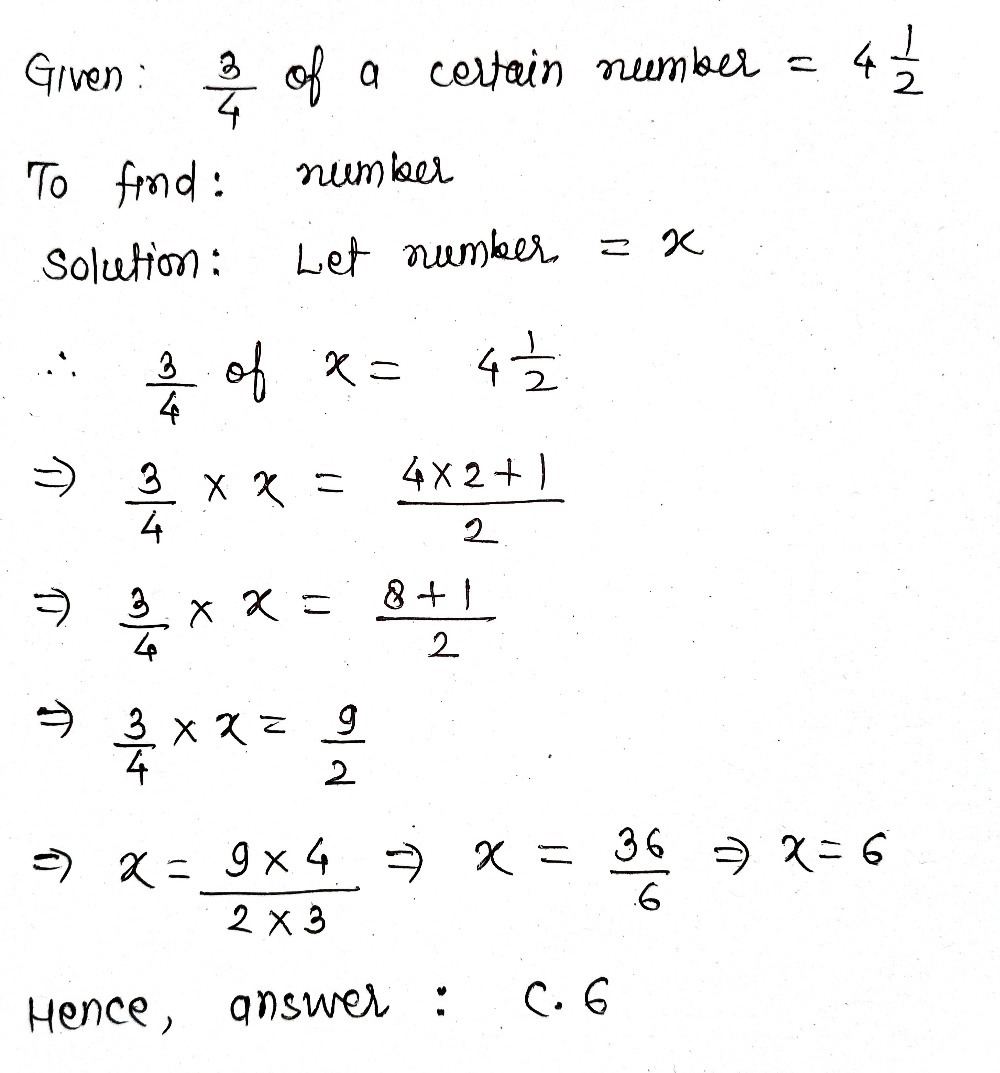 Given: 3/4 of a certain number = 4 1/2
To find: number
Solution: Let number = x
∴ 3/4 of x = 4 1/2
⇒ 3/4 × x = (4×2+1)/2
⇒ 3/4 × x = (8+1)/2
⇒ 3/4 × x = 9/2
⇒ x = (9×4)/(2×3) ⇒ x = 36/6 ⇒ x = 6
Hence, answer : C. 6